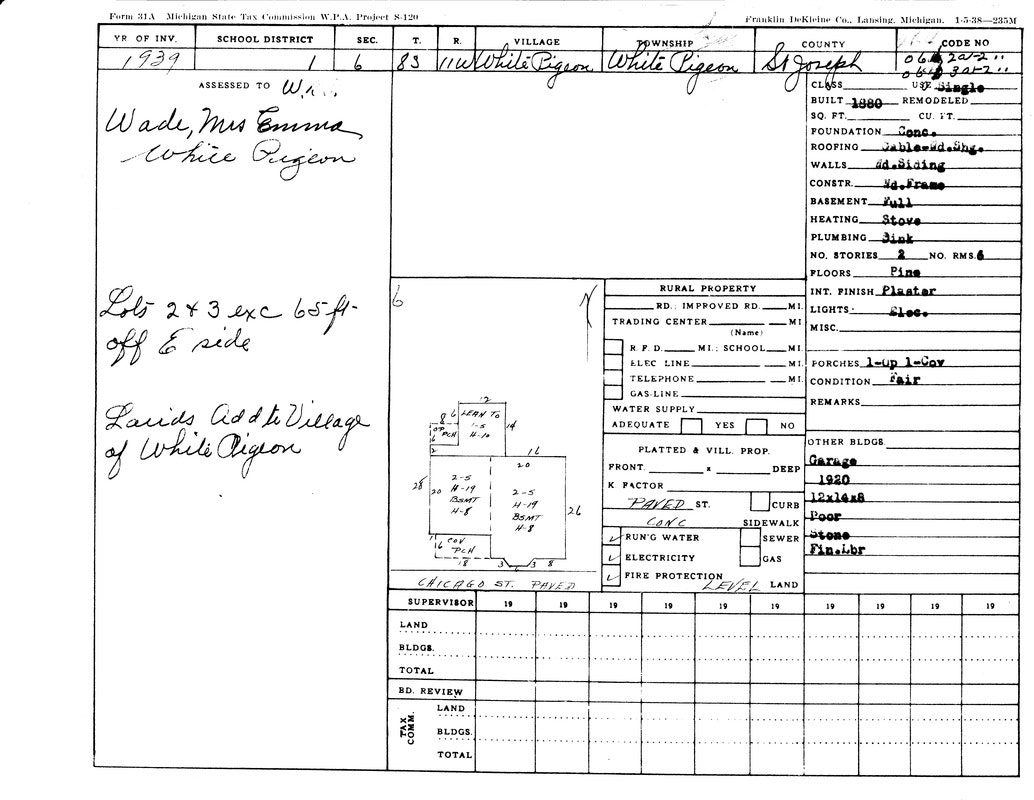 Form 31A Michigan State Tax Commission W.P.A. Project S-120
Franklin DeKleine Co., Lansing, Michigan. 1-5-38—235M
YR OF INV. SCHOOL DISTRICT SEC. T. R. VILLAGE TOWNSHIP COUNTY CODE NO
1939 1 6 8S 11W White Pigeon White Pigeon St Joseph
ASSESSED TO
Wade, Mrs Emma
White Pigeon
Lots 2 & 3 exc 65 ft.
off E side
Add to Village
of White Pigeon
CLASS USE Single
BUILT 1880 REMODELED
SQ. FT. CU. FT.
FOUNDATION Conc.
ROOFING Gable-Wd.Shg.
WALLS Wd.Siding
CONSTR. Wd.Frame
BASEMENT Full
HEATING Stove
PLUMBING Sink
NO. STORIES 2 NO. RMS. 6
FLOORS Pine
INT. FINISH Plaster
LIGHTS Elec.
MISC.
PORCHES 1-Op 1-Cov
CONDITION Fair
REMARKS
OTHER BLDGS.
Garage
1920
12x14x8
Poor
Stone
Fin.Lbr
6 N
12
8 6 LEAN TO
OP PCH 1-S 14
6 H-10
2 16
20
28 20 2-S 2-S
H-19 H-19
BSMT BSMT 26
H-8 H-8
1 COV
6 PCH
18 3 6 3 8
CHICAGO ST. PAVED
RURAL PROPERTY
RD.; IMPROVED RD. MI.
TRADING CENTER MI
(Name)
R.F.D. MI.; SCHOOL MI.
ELEC LINE MI.
TELEPHONE MI.
GAS-LINE
WATER SUPPLY
ADEQUATE YES NO
PLATTED & VILL. PROP.
FRONT. x DEEP
K FACTOR
PAVED ST. CURB
CONC SIDEWALK
✓ RUN'G WATER SEWER
✓ ELECTRICITY GAS
✓ FIRE PROTECTION
LEVEL LAND
SUPERVISOR 19 19 19 19 19 19 19 19 19 19
LAND
BLDGS.
TOTAL
BD. REVIEW
TAX COMM.
LAND
BLDGS.
TOTAL